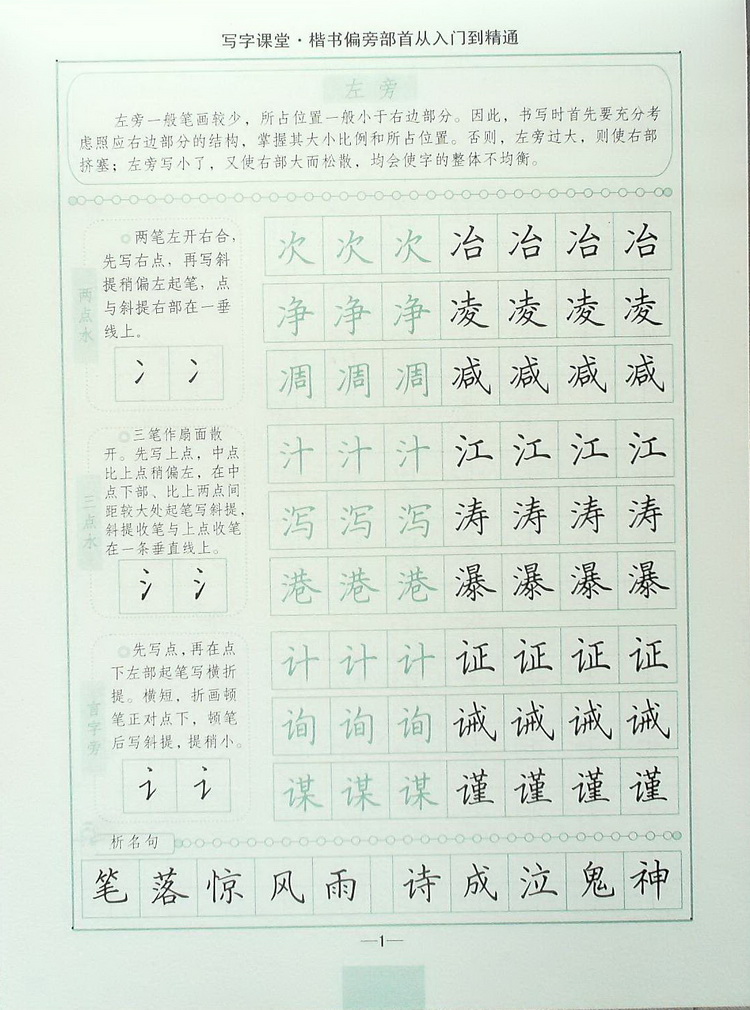 写字课堂·楷书偏旁部首从入门到精通
左旁
左旁一般笔画较少，所占位置一般小于右边部分。因此，书写时首先要充分考
虑照应右边部分的结构，掌握其大小比例和所占位置。否则，左旁过大，则使右部
挤塞；左旁写小了，又使右部大而松散，均会使字的整体不均衡。
两点水
两笔左开右合，
先写右点，再写斜
提稍偏左起笔，点
与斜提右部在一垂
线上。
冫冫
次次次冶冶冶冶
净净净凌凌凌凌
凋凋凋减减减减
三点水
三笔作扇面散
开。先写上点，中点
比上点稍偏左，在中
点下部、比上两点间
距较大处起笔写斜提，
斜提收笔与上点收笔
在一条垂直线上。
氵氵
汁汁汁江江江江
泻泻泻涛涛涛涛
港港港瀑瀑瀑瀑
言字旁
先写点，再在点
下左部起笔写横折
提。横短，折画顿
笔正对点下，顿笔
后写斜提，提稍小。
讠讠
计计计证证证证
询询询诫诫诫诫
谋谋谋谨谨谨谨
析名句
笔落惊风雨 诗成泣鬼神
—1—